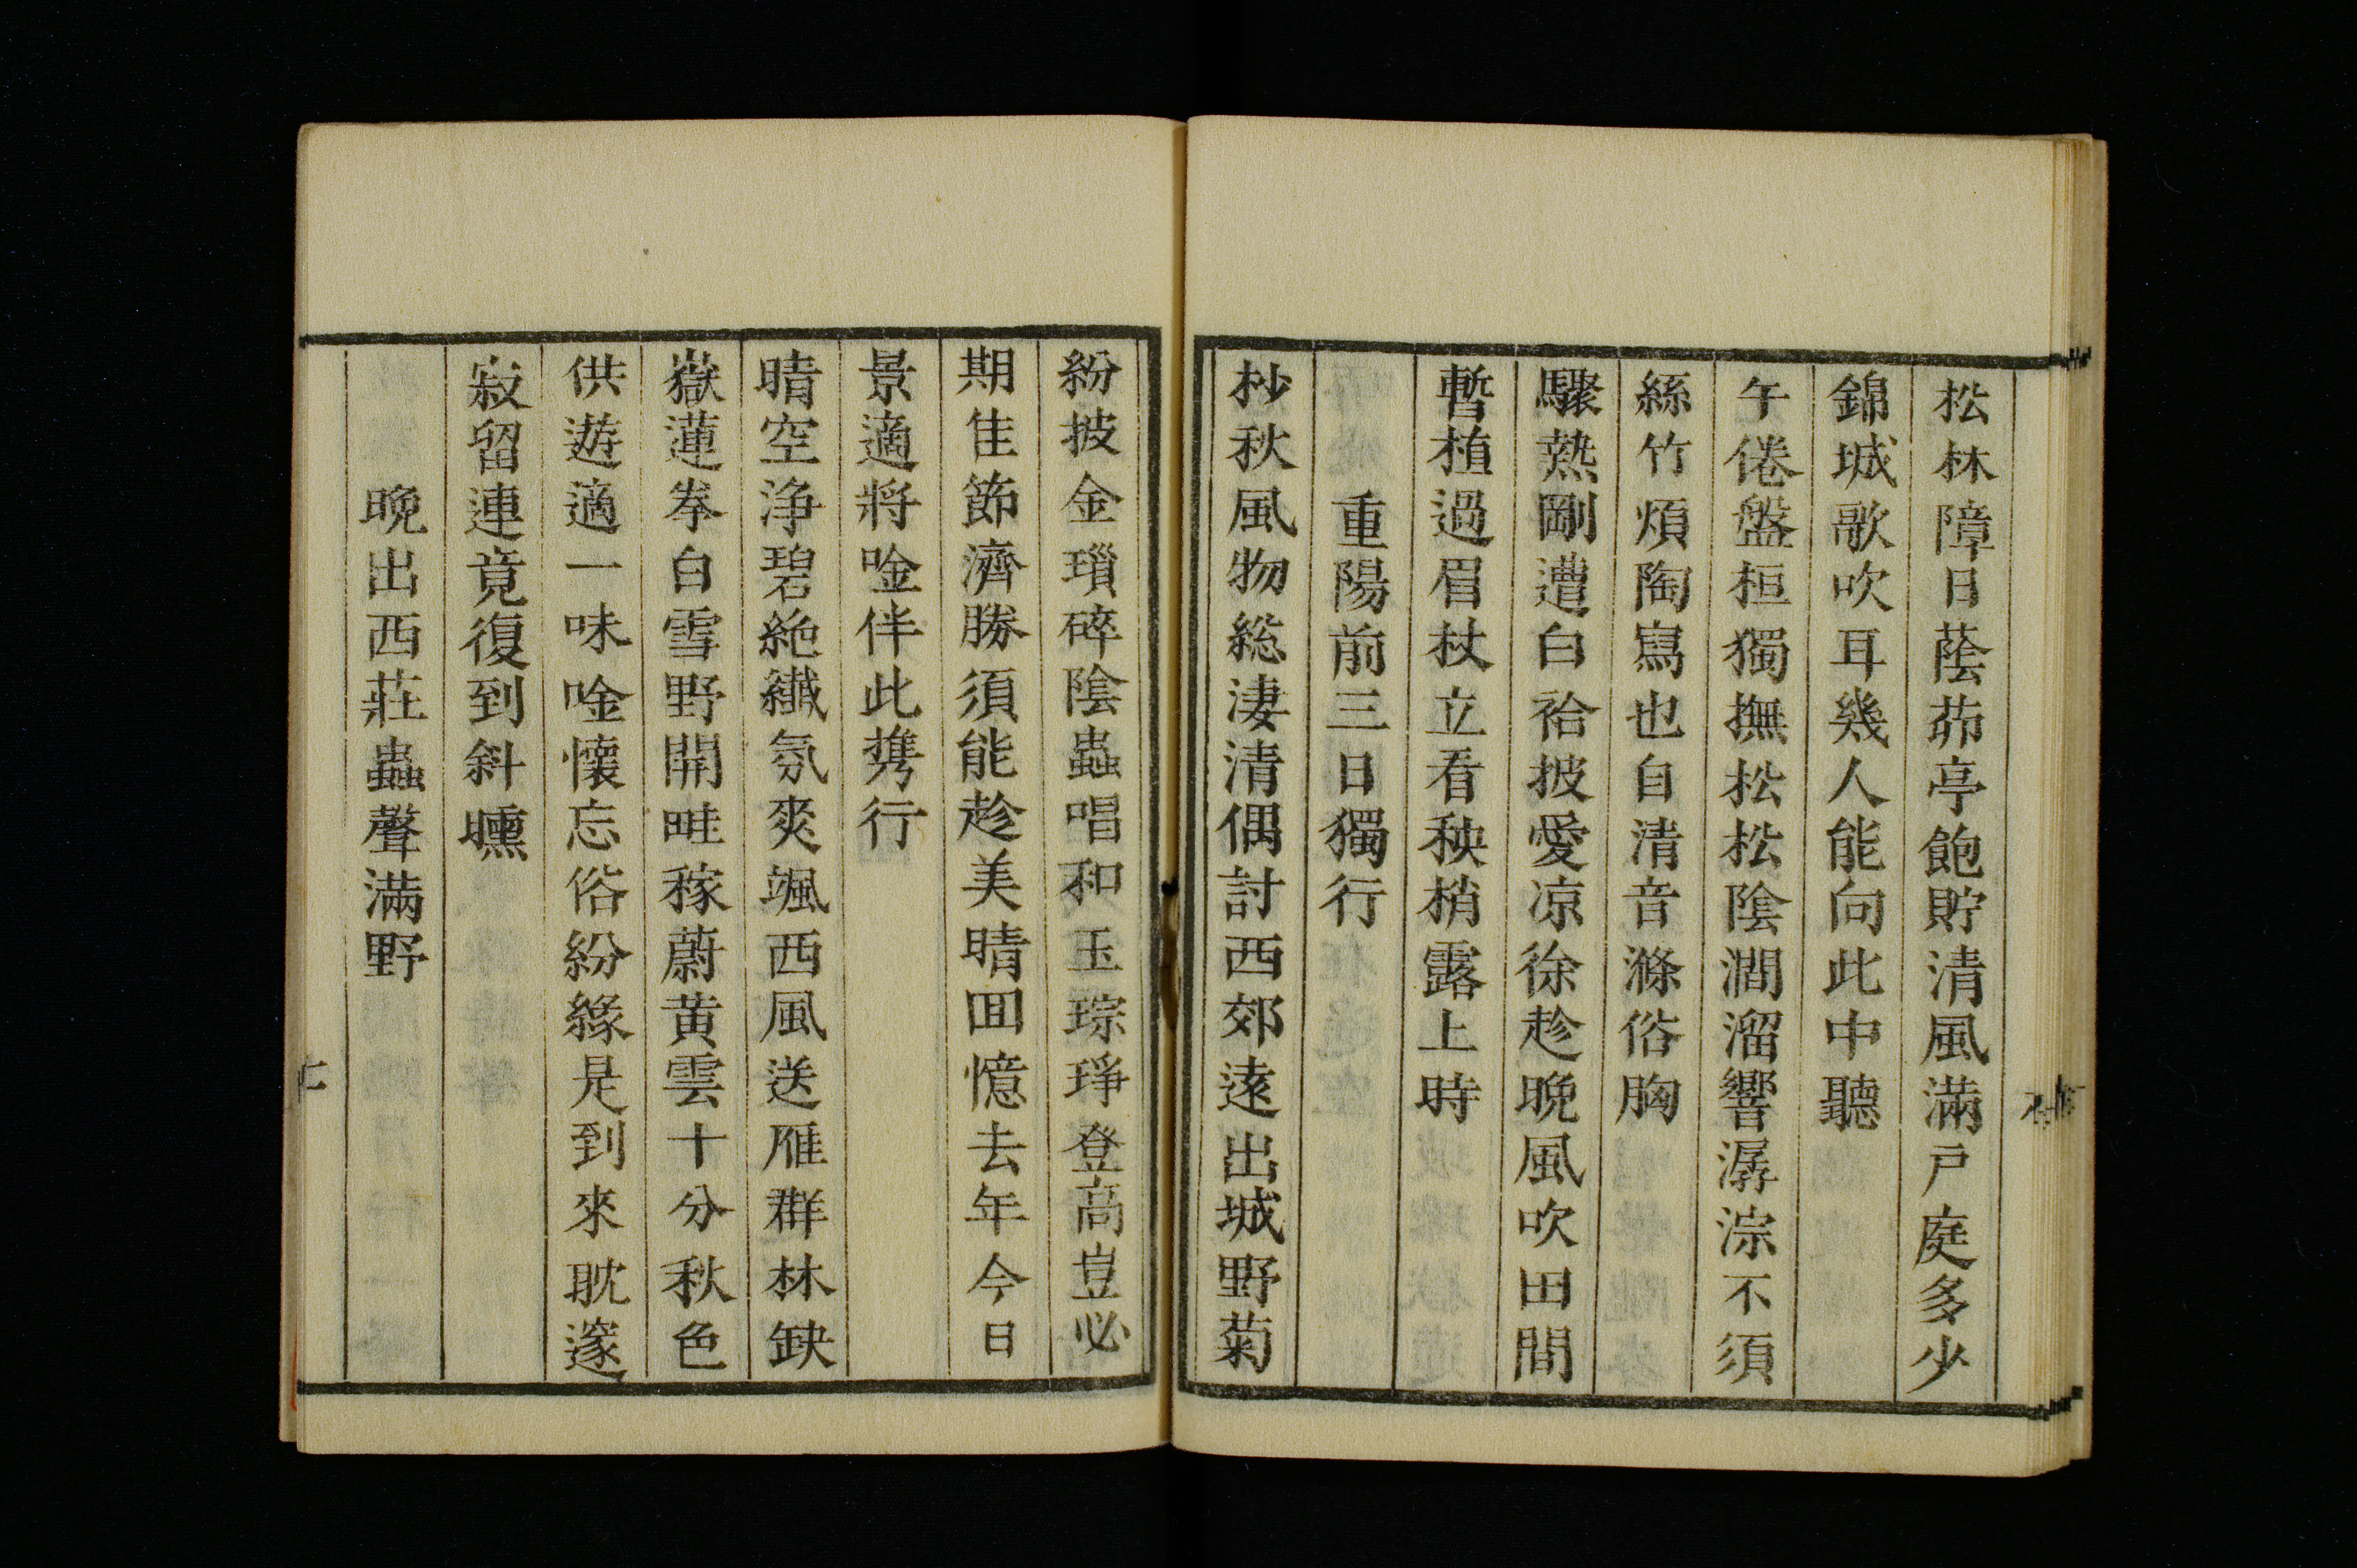 松林障日蔭茆亭飽貯清風滿戸庭多少
錦城歌吹耳幾人能向此中聽
午倦盤桓獨撫松松陰澗溜響潺淙不須
絲竹煩陶寫也自清音滌俗胸
驟熱剛遭白袷披愛凉徐趁晚風吹田間
暫植過眉杖立看秧梢露上時
重陽前三日獨行
杪秋風物総凄清偶討西郊遠出城野菊
紛披金瓆碎陰蟲唱和玉琮琤登高豈必
期佳節濟勝須能趁美晴囬憶去年今日
景適將唫伴此携行
晴空浄碧絶纖氛爽颯西風送雁群林缺
嶽蓮拳白雪野開畦稼蔚黄雲十分秋色
供遊適一味唫懷忘俗紛緣是到來耽邃
寂留連竟復到斜曛
晚出西莊蟲聲滿野